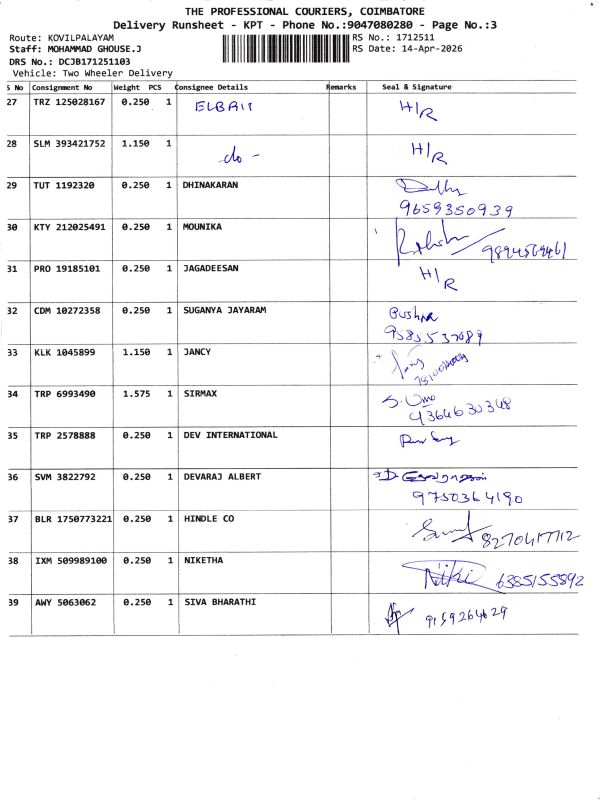 THE PROFESSIONAL COURIERS, COIMBATORE
Delivery Runsheet - KPT - Phone No.:9047080280 - Page No.:3
Route: KOVILPALAYAM RS No.: 1712511
Staff: MOHAMMAD GHOUSE.J RS Date: 14-Apr-2026
DRS No.: DCJB171251103
Vehicle: Two Wheeler Delivery
S No Consignment No Weight PCS Consignee Details Remarks Seal & Signature
27 TRZ 125028167 0.250 1 ELBAIT H/R
28 SLM 393421752 1.150 1 do - H/R
29 TUT 1192320 0.250 1 DHINAKARAN
9659350939
30 KTY 212025491 0.250 1 MOUNIKA
31 PRO 19185101 0.250 1 JAGADEESAN H/R
32 CDM 10272358 0.250 1 SUGANYA JAYARAM Pushpa
9585537089
33 KLK 1045899 1.150 1 JANCY
34 TRP 6993490 1.575 1 SIRMAX S. Uma
9364630348
35 TRP 2578888 0.250 1 DEV INTERNATIONAL
36 SVM 3822792 0.250 1 DEVARAJ ALBERT
9750364190
37 BLR 1750773221 0.250 1 HINDLE CO 8270417712
38 IXM 509989100 0.250 1 NIKETHA Niki 6385155892
39 AWY 5063062 0.250 1 SIVA BHARATHI 9159264629